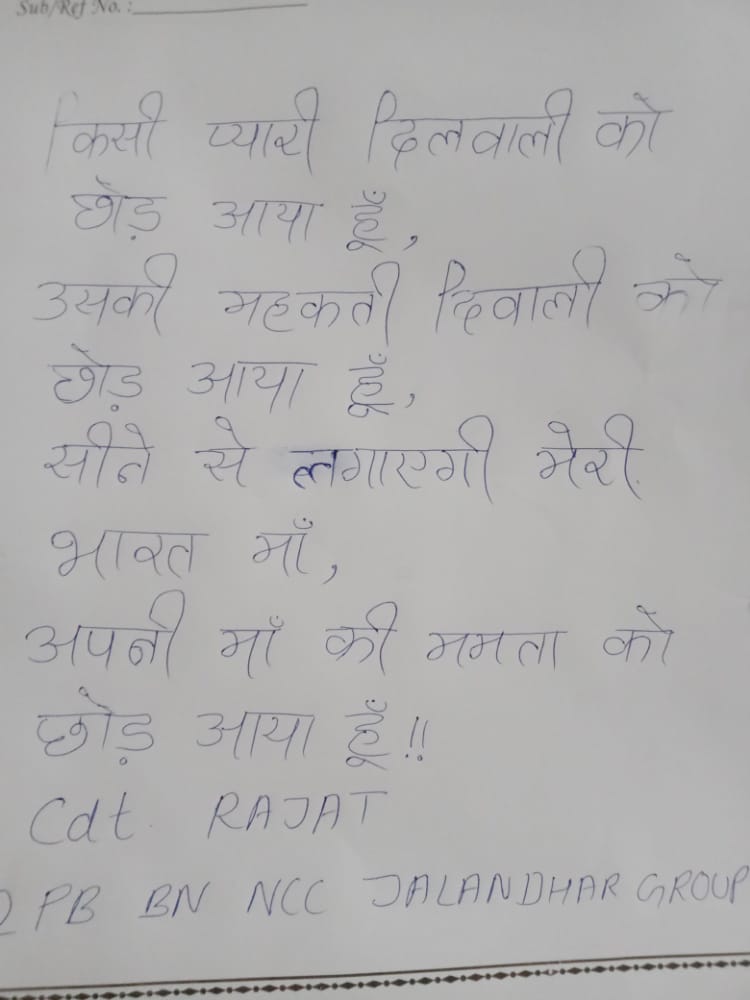 Sub/Ref No. :
किसी प्यारी दिलवाली को
छोड़ आया हूँ,
उसकी महकती दिवाली को
छोड़ आया हूँ,
सीने से लगाएगी मेरी
भारत माँ,
अपनी माँ की ममता को
छोड़ आया हूँ !!
Cdt. RAJAT
2 PB BN NCC JALANDHAR GROUP